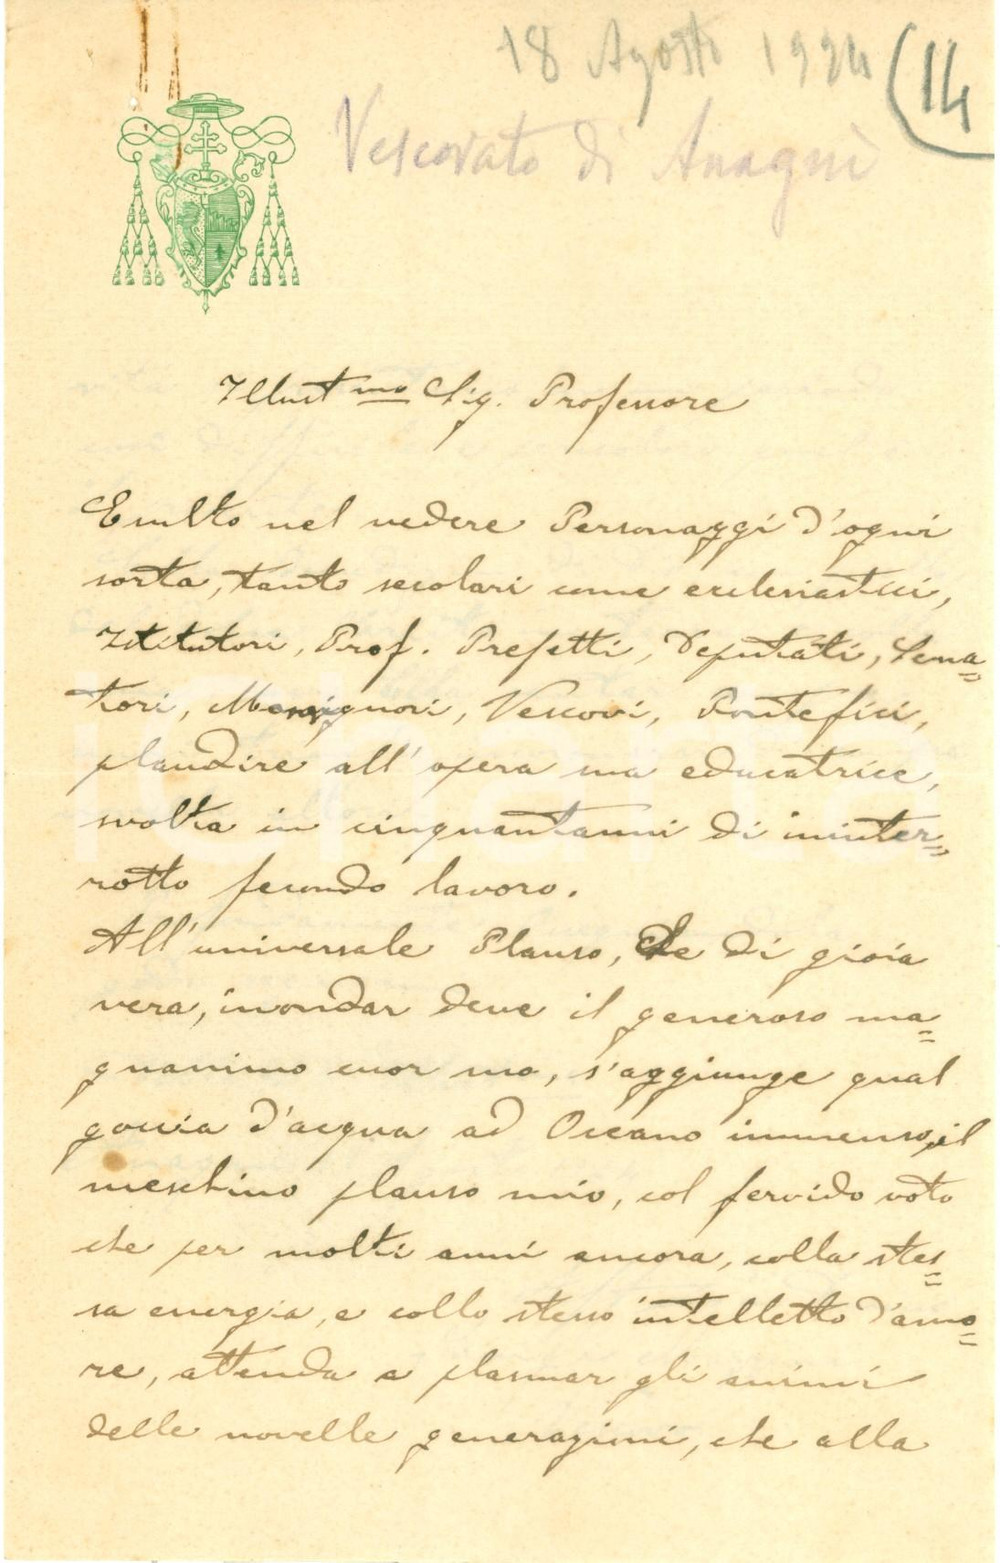 18 Agosto 1924 (14
Vescovato di Anagni
Illust.mo Sig. Professore
Esulto nel vedere Personaggi d'ogni
sorta, tanto secolari come ecclesiastici,
Istitutori, Prof. Prefetti, Deputati, Sena=
tori, Monsignori, Vescovi, Pontefici,
plaudire all'opera sua educatrice,
svolta in cinquantanni di ininter=
rotto fecondo lavoro.
All'universale Plauso, che di gioia
vera, inondar deve il generoso ma=
gnanimo cuor suo, s'aggiunge qual
goccia d'acqua ad Oceano immenso, il
meschino plauso mio, col fervido voto
che per molti anni ancora, colla stes=
sa energia, e collo stesso intelletto d'amo=
re, attenda a plasmar gli animi
delle novelle generazioni, che alla